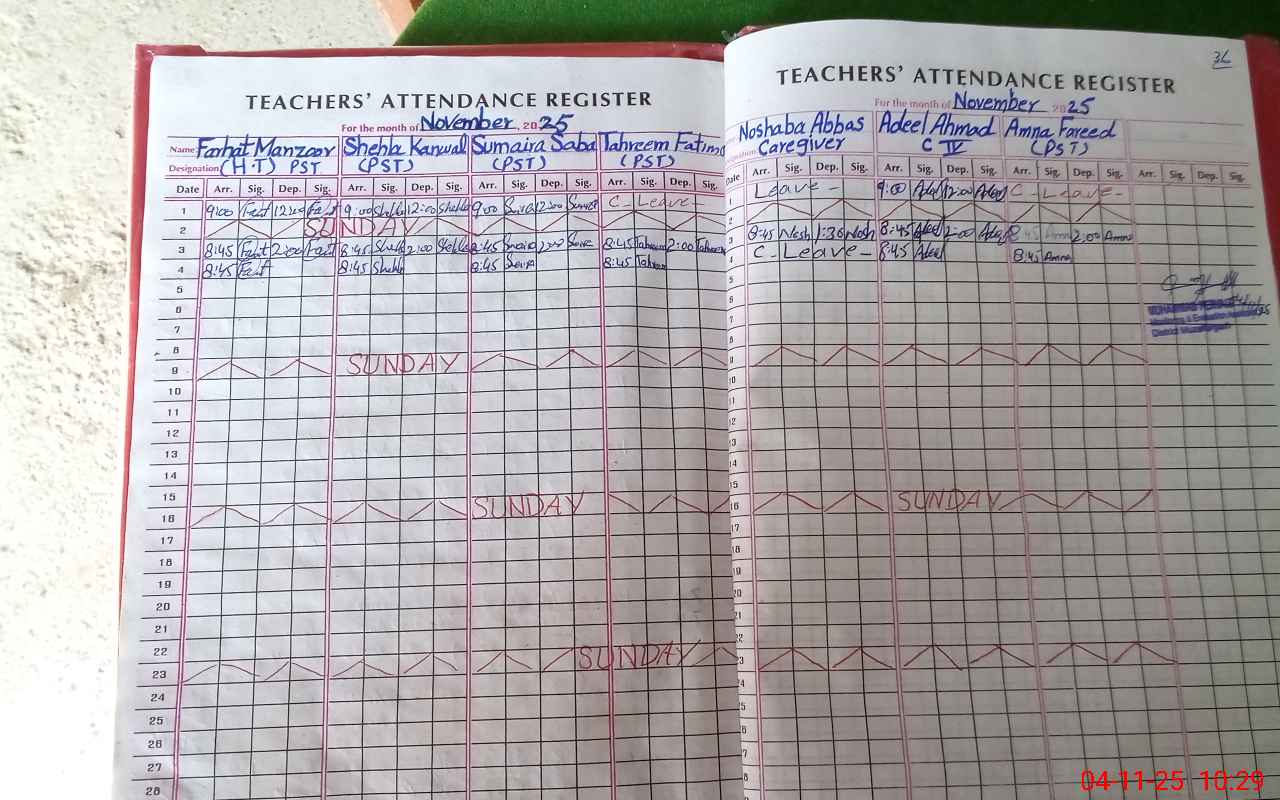 TEACHERS' ATTENDANCE REGISTER
For the month of November, 2025
Name Farhat Manzoor Shehla Kanwal Sumaira Saba Tahreem Fatima
Designation (H.T) PST (PST) (PST) (PST)
Date Arr. Sig. Dep. Sig. Arr. Sig. Dep. Sig. Arr. Sig. Dep. Sig. Arr. Sig. Dep. Sig.
1 9:00 12:00 9:00 12:00 9:00 12:00 C-Leave
2 SUNDAY
3 8:45 2:00 8:45 2:00 8:45 2:00 8:45 2:00
4 8:45 8:45 8:45 8:45
5
6
7
8
9 SUNDAY
10
11
12
13
14
15
16 SUNDAY
17
18
19
20
21
22
23 SUNDAY
24
25
26
27
28
TEACHERS' ATTENDANCE REGISTER
For the month of November 2025
Noshaba Abbas Adeel Ahmad Amna Fareed
Caregiver C IV (PST)
Date Arr. Sig. Dep. Sig. Arr. Sig. Dep. Sig. Arr. Sig. Dep. Sig. Arr. Sig. Dep. Sig.
1 Leave - 9:00 Adeel 12:00 Adeel C-Leave-
2
3 8:45 Nosh 1:30 Nosh 8:45 Adeel 2:00 Adeel 8:45 Amna 2:00 Amna
4 C-Leave- 8:45 Adeel 8:45 Amna
5
6
7
8
9
10
11
12
13
14
15
16 SUNDAY
17
18
19
20
21
22
23
24
25
26
27
04-11-25 10:29